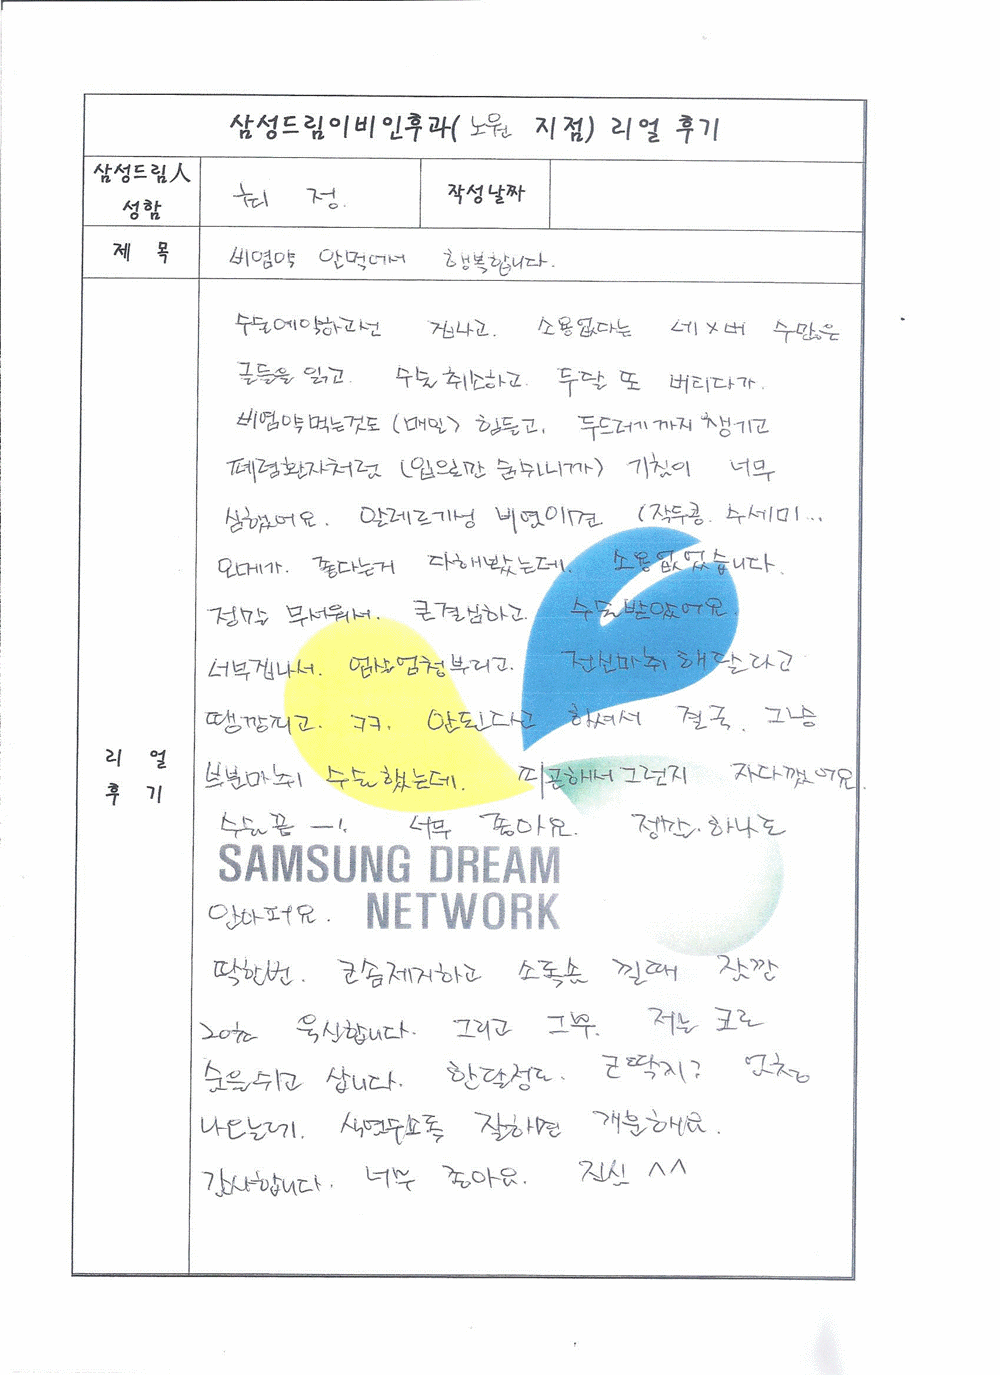 삼성드림이비인후과( 노원 지점) 리얼 후기
삼성드림人 성함
최 정.
작성날짜
제 목
비염약 안먹어서 행복합니다.
리 얼 후 기
수술예약하고선 겁나고. 소용없다는 네×버 수많은
글들을 읽고. 수술 취소하고. 두달 또 버티다가.
비염약먹는것도 (매일) 힘들고. 두드러기까지 생기고
폐렴환자처럼 (입으로만 숨쉬니까) 기침이 너무
심했어요. 알레르기성 비염이면 (작두콩. 수세미...
오메가. 좋다는거 다해봤는데. 소용없었습니다.
정말 무서워서. 큰결심하고. 수술받았어요.
너무겁나서. 엄살엄청부리고. 전신마취 해달라고
땡깡피고. ㅋㅋ. 안된다고 하셔서 결국. 그냥
부분마취 수술했는데. 피곤해서그런지 자다깼어요.
수술 끝 너무 좋아요. 정말. 하나도
SAMSUNG DREAM
NETWORK
안아퍼요.
딱한번. 큰솜제거하고 소독솜 낄때 잠깐
20초 욱신합니다. 그리고 그뿐. 저는 코로
숨을쉬고 삽니다. 한달정도. 코딱지? 엄청
나오는데. 식염수소독 잘하면 개운해요.
감사합니다. 너무 좋아요. 진심 ^^